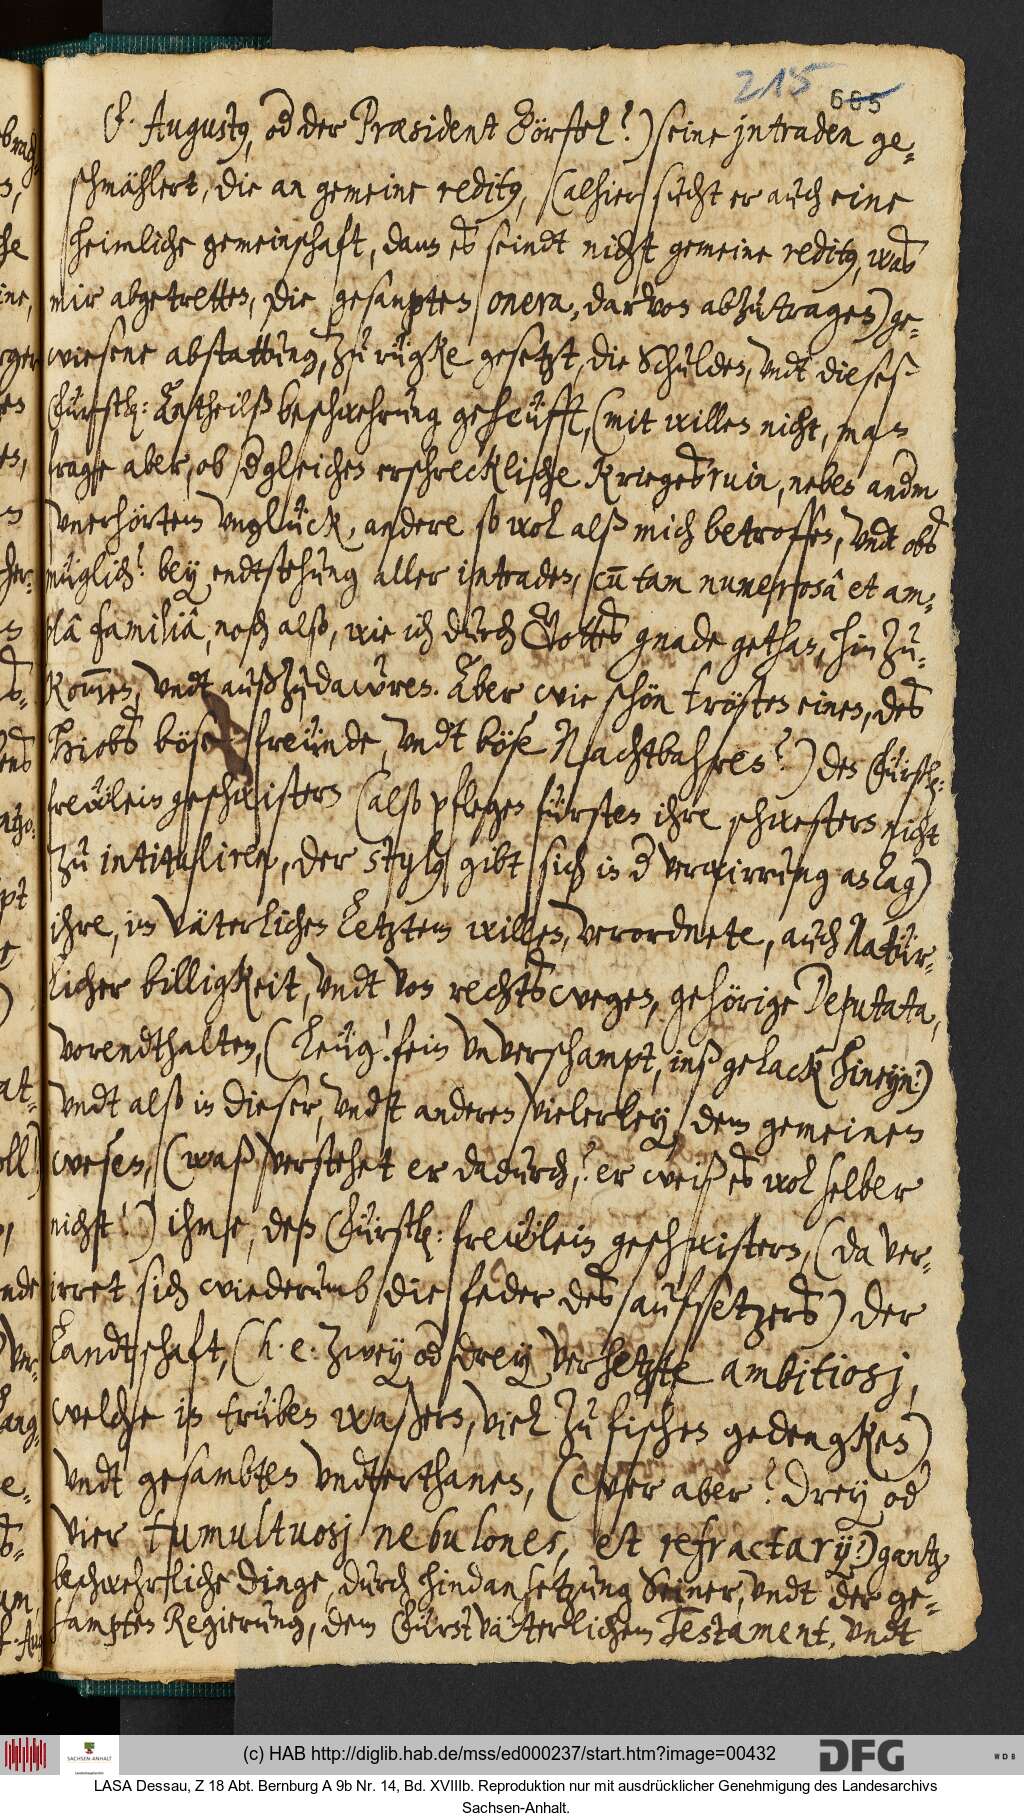 215 605
(F. Augustus, od der Præsident Börstel?) seine jntraden ge-
schmählert, die an gemeine reditus, (alhier sucht er auch eine
heimliche gemeinschaft, dann es seindt nicht gemeine reditus, was
mir abgetretten, die gesampten onera, darvon abzutragen) ge-
wiesene abstattung, zu rügke gesetzt, die Schulden, undt dieseß
Fürstl: Antheilß beschwehrung geheüfft, (mit willen nicht, man
frage aber, ob dergleichen erschreckliche Kriegesruin, neben anderm
unerhörtem unglück, andere so wol alß mich betroffen, undt obs
müglich? bey endtstehung aller intraden, cum tam numerosâ et am-
plâ familiâ, noch alß, wie ich durch Gottes gnade gethan, hin zu-
kommen, undt außzudawren. Aber wie schön trösten einen, des
Hiobs böse freünde, undt böse Nachtbahren?) den Fürstl:
frewlein geschwistern (also pflegen fürsten ihre schwestern nicht
zu intituliren, der stylus gibt sich in der verwirrung an Tag)
ihre, in Väterlichen Letztem willen, verordnete, auch Natür-
licher billigkeit, undt von rechts wegen, gehörige Deputata,
vorendthalten, (Leüg! fein unverschampt, inß gelack hineyn!)
undt also in dieser, undt anderen vielerley, dem gemeinen
wesen, (waß verstehet er dadurch,? er weiß es wol selber
nicht!) ihme, deß Fürstl: frewlein geschwistern, (da ver-
irret sich wiederumb die feder des aufsetzers) der
Landtschaft, (h. e. zwey od drey verhetzte ambitiosj,
welche in trüben waßern, viel zu fischen gedengken)
undt gesambten undterthanen, (wer aber? drey od
vier tumultuosj nebulones, et refractarÿ?) gantz
beschwehrliche dinge, durch hindansetzung Seiner, undt der ge-
sampten Regierung, dem Fürstväterlichem Testament, undt
(c) HAB http://diglib.hab.de/mss/ed000237/start.htm?image=00432
SACHSEN-ANHALT
DFG
WDB
LASA Dessau, Z 18 Abt. Bernburg A 9b Nr. 14, Bd. XVIIIb. Reproduktion nur mit ausdrücklicher Genehmigung des Landesarchivs
Sachsen-Anhalt.